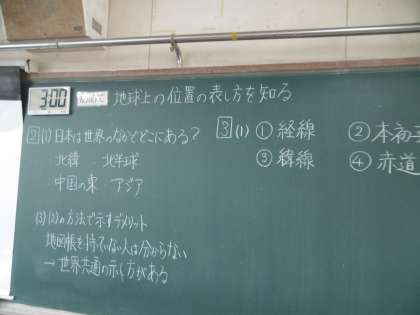 3:00
地球上の位置の表し方を知る
2 (1) 日本は世界のなかで、どこにある?
北緯 北半球
中国の東 アジア
(3) (2)の方法で示すデメリット
地図帳を持っていない人は分からない
→ 世界共通の示し方がある
3 (1) ① 経線 ② 本初
③ 緯線 ④ 赤道